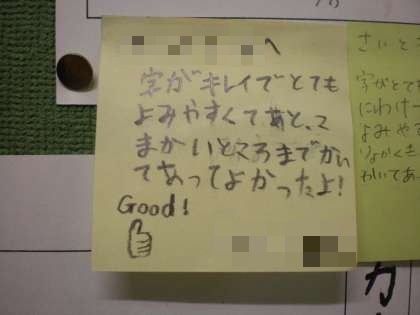 へ
字がキレイでとても
よみやすくてあと、こ
まかいところまでかい
てあってよかったよ!
Good!
さいとさ
字がとても
にわけ
よみやす
りょかくき
かいてあ
カ